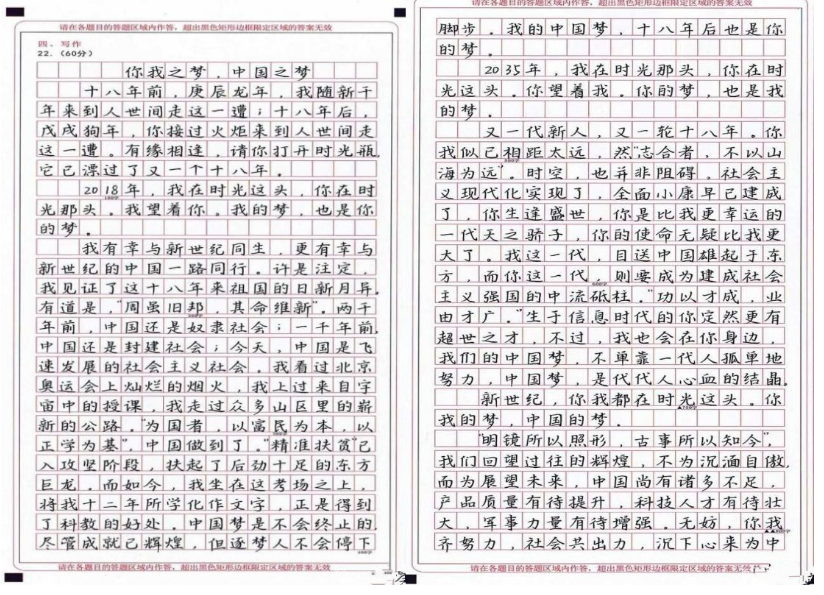 请在各题目的答题区域内作答，超出黑色矩形边框限定区域的答案无效
四、写作
22.（60分）
你我之梦，中国之梦
十八年前，庚辰龙年，我随新千
年来到人世间走这一遭；十八年后，
戊戌狗年，你接过火炬来到人世间走
这一遭。有缘相逢，请你打开时光瓶，
它已漂过了又一个十八年。
2018年，我在时光这头，你在时
光那头。我望着你。我的梦，也是你
的梦。
我有幸与新世纪同生，更有幸与
新世纪的中国一路同行。许是注定，
我见证了这十八年来祖国的日新月异。
有道是，“周虽旧邦，其命维新”。两千
年前，中国还是奴隶社会；一千年前，
中国还是封建社会；今天，中国是飞
速发展的社会主义社会。我看过北京
奥运会上灿烂的烟火，我上过来自宇
宙中的授课，我走过众多山区里的崭
新的公路。“为国者，以富民为本，以
正学为基”，中国做到了。“精准扶贫”已
入攻坚阶段，扶起了后劲十足的东方
巨龙。而如今，我坐在这考场之上，
将我十二年所学化作文字，正是得到
了科教的好处。中国梦是不会终止的，
尽管成就已辉煌，但逐梦人不会停下
请在各题目的答题区域内作答，超出黑色矩形边框限定区域的答案无效
请在各题目的答题区域内作答，超出黑色矩形边框限定区域的答案无效
脚步。我的中国梦，十八年后也是你
的梦。
2035年，我在时光那头，你在时
光这头。你望着我。你的梦，也是我
的梦。
又一代新人，又一轮十八年。你
我似已相距太远，然“志合者，不以山
海为远”。时空，也并非阻碍。社会主
义现代化实现了，全面小康早已建成
了，你生逢盛世，你是比我更幸运的
一代天之骄子，你的使命无疑比我更
大了。我这一代，目送中国雄起于东
方，而你这一代，则要成为建成社会
主义强国的中流砥柱。“功以才成，业
由才广。”生于信息时代的你定然更有
超世之才，不过，我也会在你身边，
我们的中国梦，不单靠一代人孤单地
努力，中国梦，是代代人心血的结晶。
新世纪，你我都在时光这头。你
我的梦，中国的梦。
“明镜所以照形，古事所以知今”，
我们回望过往的辉煌，不为沉湎自傲，
而为展望未来，中国尚有诸多不足，
产品质量有待提升，科技人才有待壮
大，军事力量有待增强。无妨，你我
齐努力，社会共出力，沉下心来为中
请在各题目的答题区域内作答，超出黑色矩形边框限定区域的答案无效